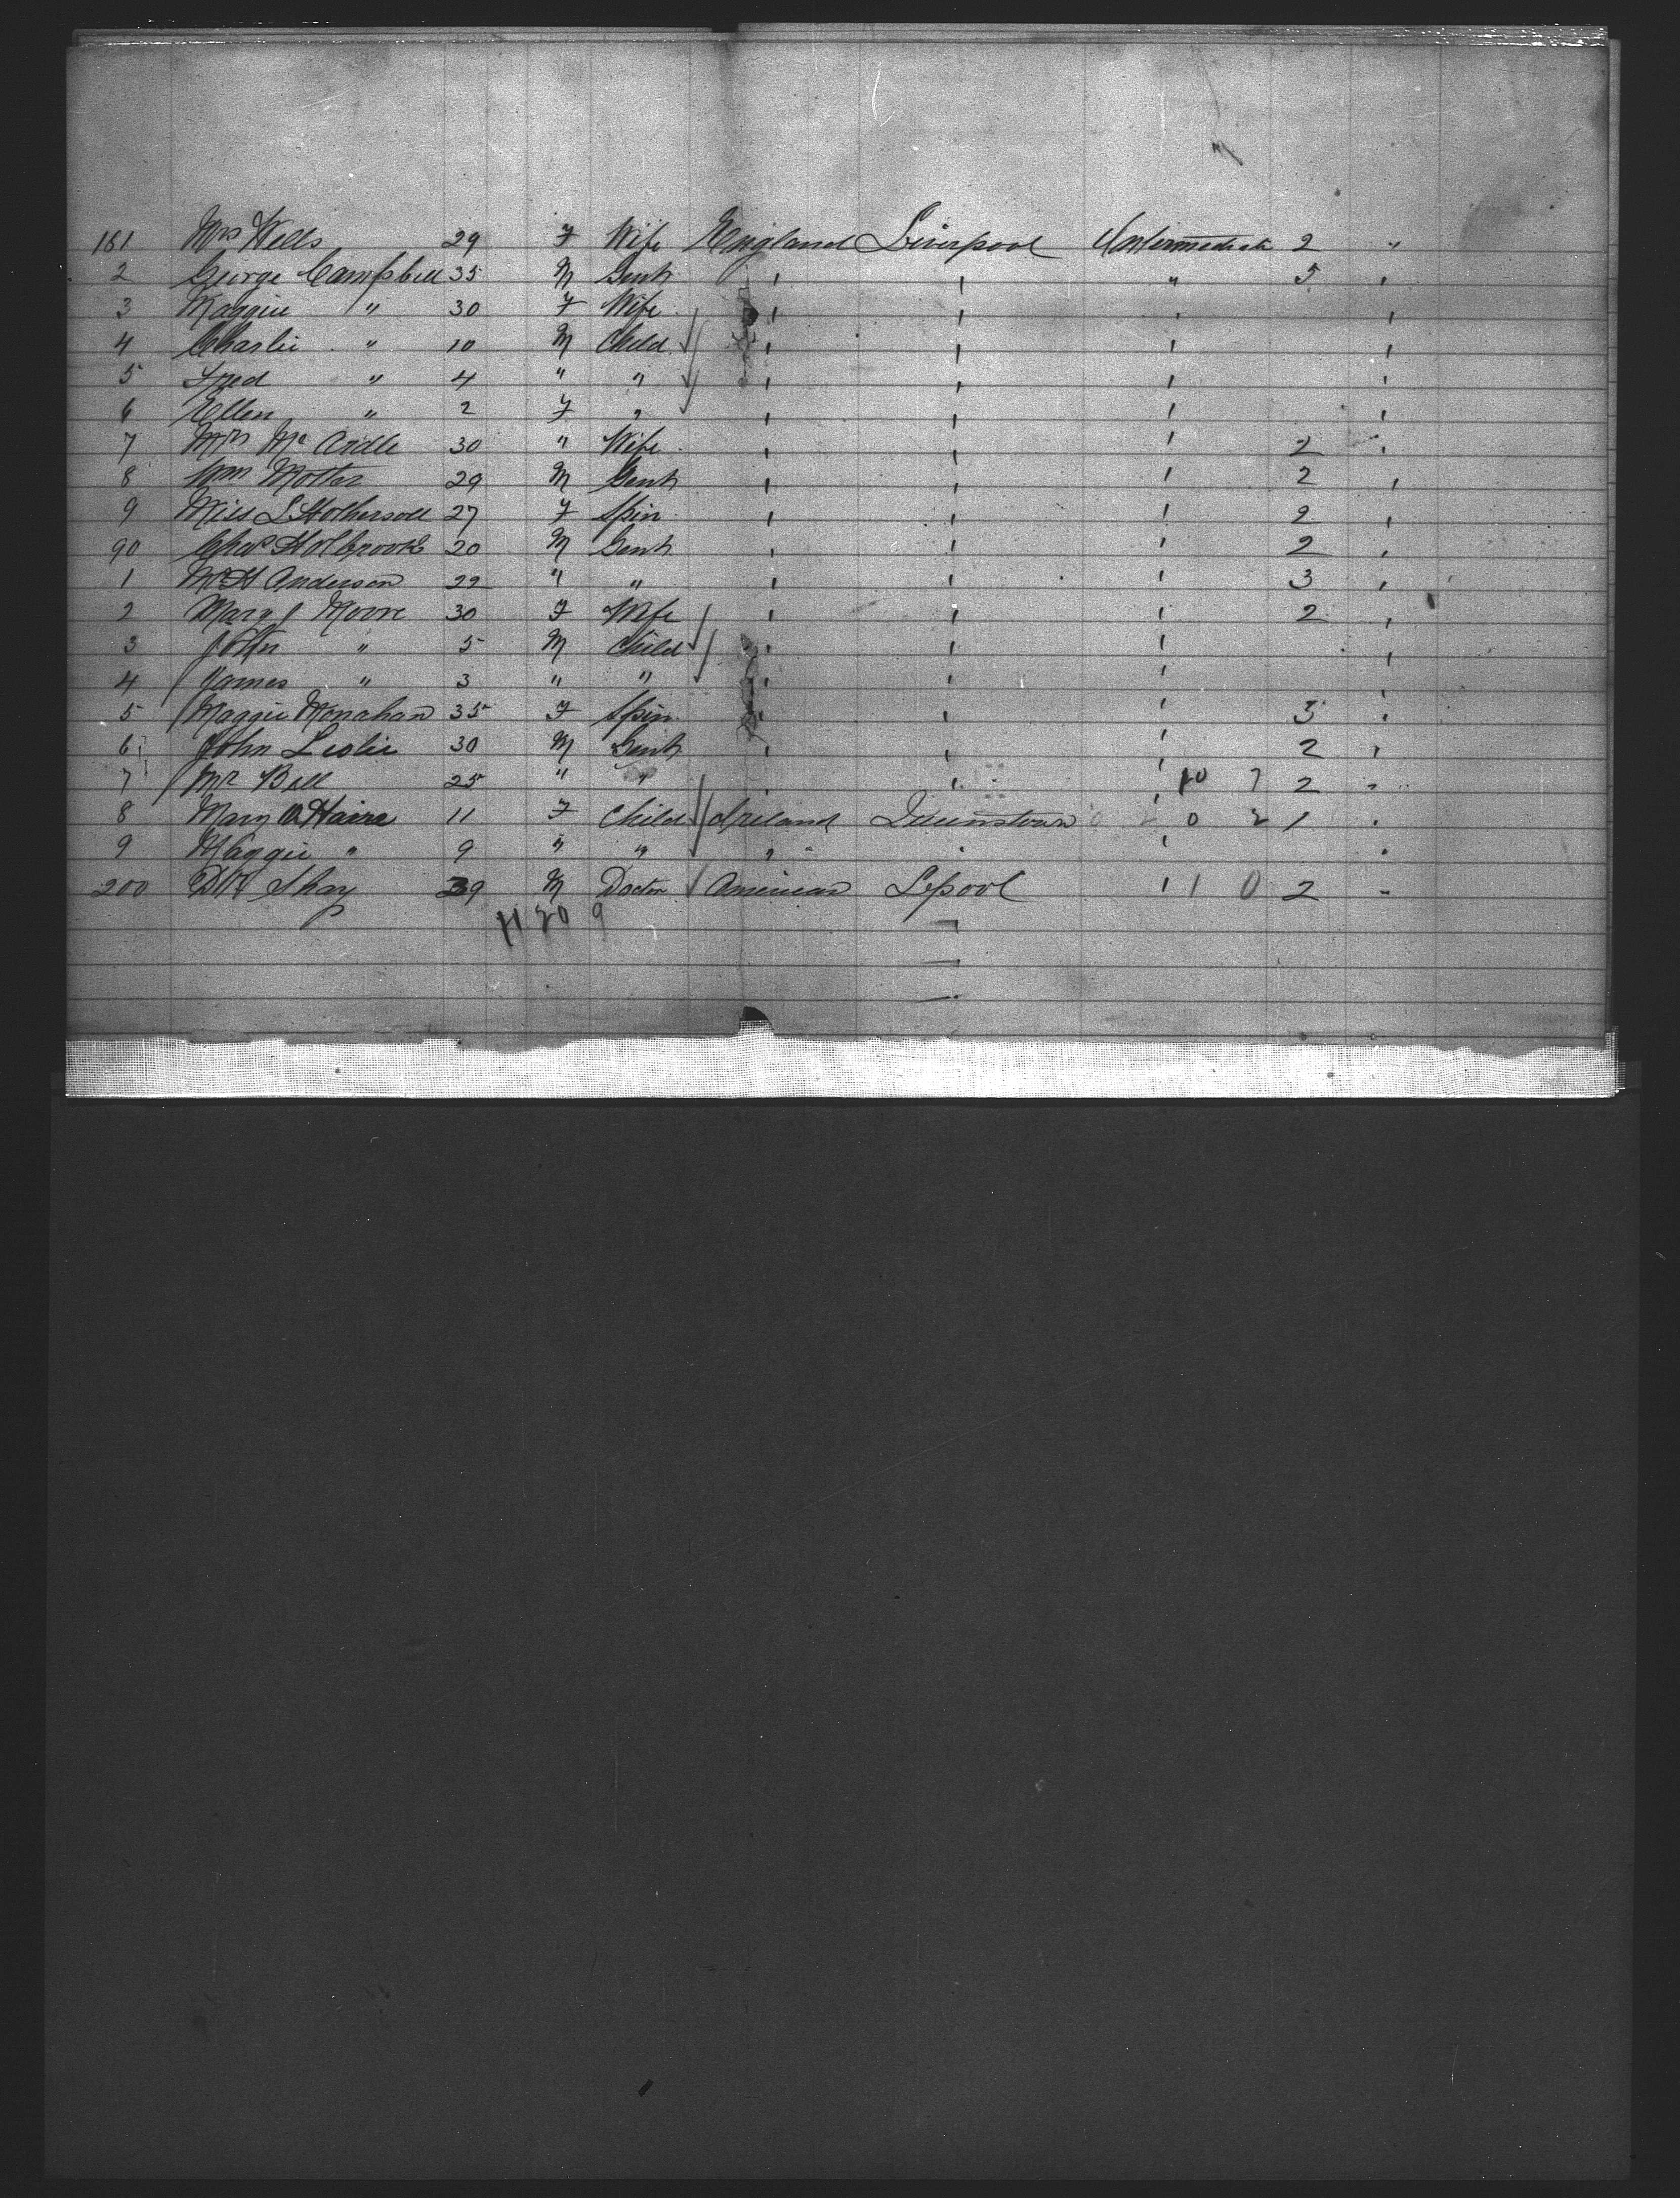 181 Mrs Wells 29 F Wife England Liverpool Intermediate 2 "
2 George Campbell 35 M Gent " " " 5 "
3 Maggie " 30 F Wife " " " "
4 Charlie " 10 M Child " " " "
5 Fred " 4 " " " " " "
6 Ellen " 2 F " " " " "
7 Mrs McArdle 30 " Wife " " " 2 "
8 Wm Motter 29 M Gent " " " 2 "
9 Miss L Hothersoll 27 F Spin " " " 2 "
90 Chas Holbrook 20 M Gent " " " 2 "
1 Mr H Anderson 22 " " " " " 3 "
2 Mary J Moore 30 F Wife " " " 2 "
3 John " 5 M Child " " " "
4 James " 3 " " " " " "
5 Maggie Monahan 35 F Spin " " " 3 "
6 John Leslie 30 M Gent " " " 2 "
7 Mr Bell 25 " " " " " 10 7 2 "
8 Mary O Haire 11 F Child Ireland Queenstown " 0 2 1 "
9 Maggie " 9 " " " " " "
200 Dr Shay 39 M Doctor American Lpool " 1 0 2 "
11 20 9